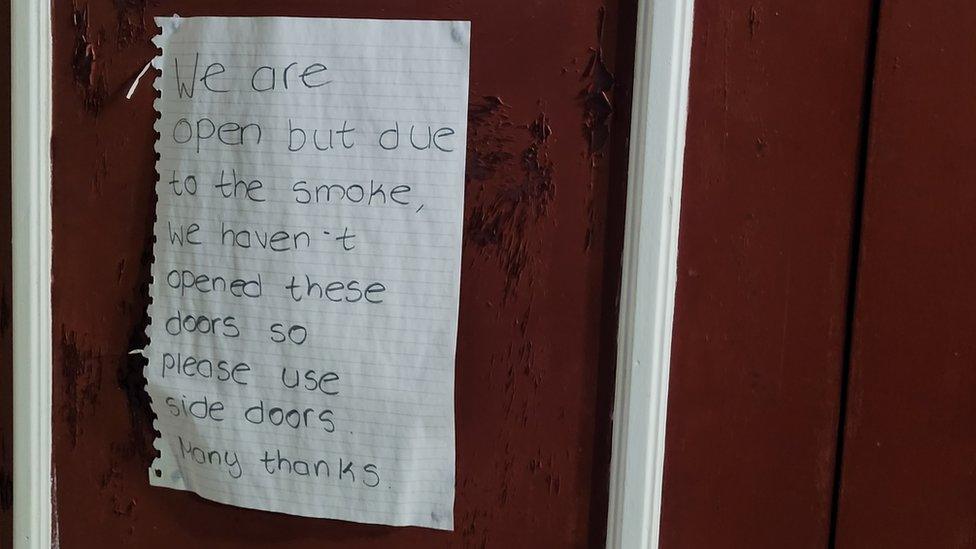 We are
open but due
to the smoke,
we haven't
opened these
doors so
please use
side doors.
Many thanks.